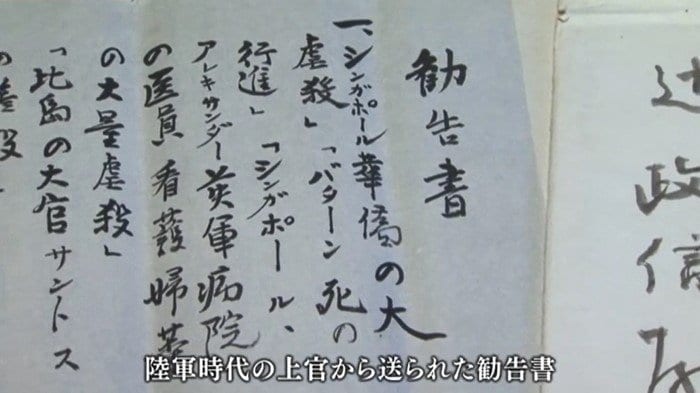 辻政信
勧告書
一、シンガポール華僑の大
虐殺」「バターン死の
行進」「シンガポール、
アレキサンダー英軍病院
の医員看護婦等
の大量虐殺」
「比島の大官サントス
の
陸軍時代の上官から送られた勧告書